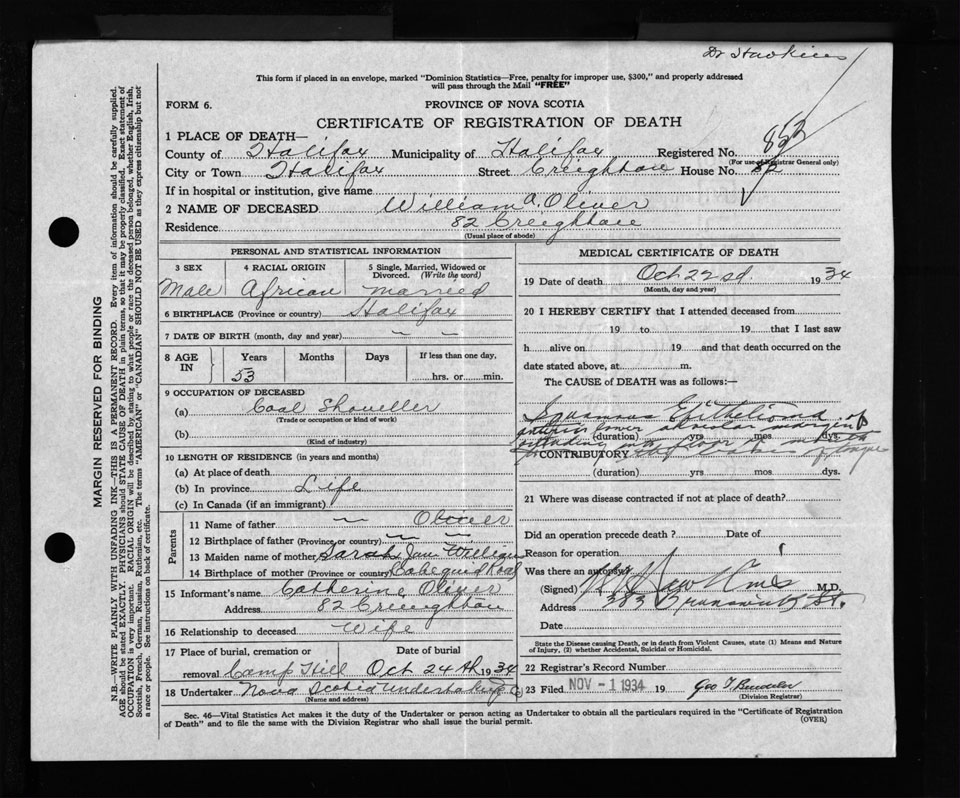 Dr Hawkins
This form if placed in an envelope, marked "Dominion Statistics—Free, penalty for improper use, $300," and properly addressed
will pass through the Mail "FREE"
FORM 6. PROVINCE OF NOVA SCOTIA
CERTIFICATE OF REGISTRATION OF DEATH
1 PLACE OF DEATH—
County of Halifax Municipality of Halifax Registered No. 852
(For use of Registrar General only)
City or Town Halifax Street Creighton House No. 82
If in hospital or institution, give name
2 NAME OF DECEASED William A. Oliver
Residence 82 Creighton
(Usual place of abode)
PERSONAL AND STATISTICAL INFORMATION
3 SEX 4 RACIAL ORIGIN 5 Single, Married, Widowed or Divorced. (Write the word)
Male African married
6 BIRTHPLACE (Province or country) Halifax
7 DATE OF BIRTH (month, day and year) — —
8 AGE IN Years Months Days If less than one day,
53 hrs. or min.
9 OCCUPATION OF DECEASED
(a) Coal Shoveller
(Trade or occupation or kind of work)
(b)
(Kind of industry)
10 LENGTH OF RESIDENCE (in years and months)
(a) At place of death
(b) In province Life
(c) In Canada (if an immigrant)
Parents
11 Name of father — Oliver
12 Birthplace of father (Province or country) — —
13 Maiden name of mother Sarah Jane William
14 Birthplace of mother (Province or country) Cobequid Road
15 Informant's name Catherine Oliver
Address 82 Creighton
16 Relationship to deceased Wife
17 Place of burial, cremation or removal Date of burial
Camp Hill Oct 24th 1934
18 Undertaker Nova Scotia Undertaking Co
(Name and address)
MEDICAL CERTIFICATE OF DEATH
19 Date of death Oct 22nd. 1934
(Month, day and year)
20 I HEREBY CERTIFY that I attended deceased from
19 to 19 that I last saw
h alive on 19 and that death occurred on the
date stated above, at m.
The CAUSE OF DEATH was as follows:—
Squamous Epithelioma of
lower alveolar margin
(duration) yrs. mos. dys.
extending into floor of mouth
CONTRIBUTORY of tongue
(duration) yrs. mos. dys.
21 Where was disease contracted if not at place of death?
Did an operation precede death? Date of
Reason for operation
Was there an autopsy?
(Signed) M.D.
Address 383 Brunswick St.
Date
State the Disease causing Death, or in death from Violent Causes, state (1) Means and Nature
of Injury, (2) whether Accidental, Suicidal or Homicidal.
22 Registrar's Record Number
23 Filed NOV -1 1934 19 Geo
(Division Registrar)
Sec. 46—Vital Statistics Act makes it the duty of the Undertaker or person acting as Undertaker to obtain all the particulars required in the "Certificate of Registration
of Death" and to file the same with the Division Registrar who shall issue the burial permit. (OVER)
MARGIN RESERVED FOR BINDING
N.B.—WRITE PLAINLY WITH UNFADING INK—THIS IS A PERMANENT RECORD. Every item of information should be carefully supplied.
AGE should be stated EXACTLY. PHYSICIANS should STATE CAUSE OF DEATH in plain terms, so that it may be properly classified. Exact statement of
OCCUPATION is very important. RACIAL ORIGIN will be described by stating to what people or race the deceased person belonged, whether English, Irish,
Scottish, French, German, Russian, Ruthenian, etc. The terms "AMERICAN" or "CANADIAN" SHOULD NOT BE USED as they express citizenship but not
a race or people. See instructions on back of certificate.